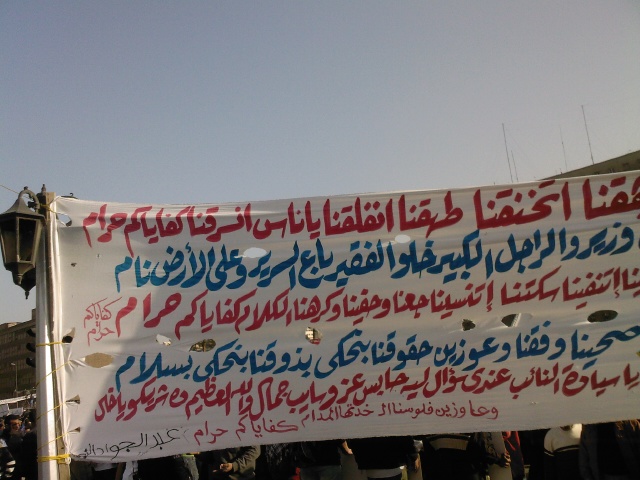 اتخنقنا طهقنا اتفلقنا ياناس انسرقنا كفاياكم حرام
وزير والراجل الكبير خلو الفقير باع السرير وعلى الأرض نام
إتنفينا سكتنا إتنسينا جعنا وحفينا وكرهنا الكلام كفاياكم حرام
كفاياكم حرام
صحينا وفقنا وعوزين حقوقنا بنحكى بذوقنا بنحكى بسلام
ياسيادة النائب عندى سؤال ليه حابس عز وسايب جمال والله العظيم شريكو ياخال
وعاوزين فلوسنا خدتها المدام
كفاياكم حرام
عبد الجواد